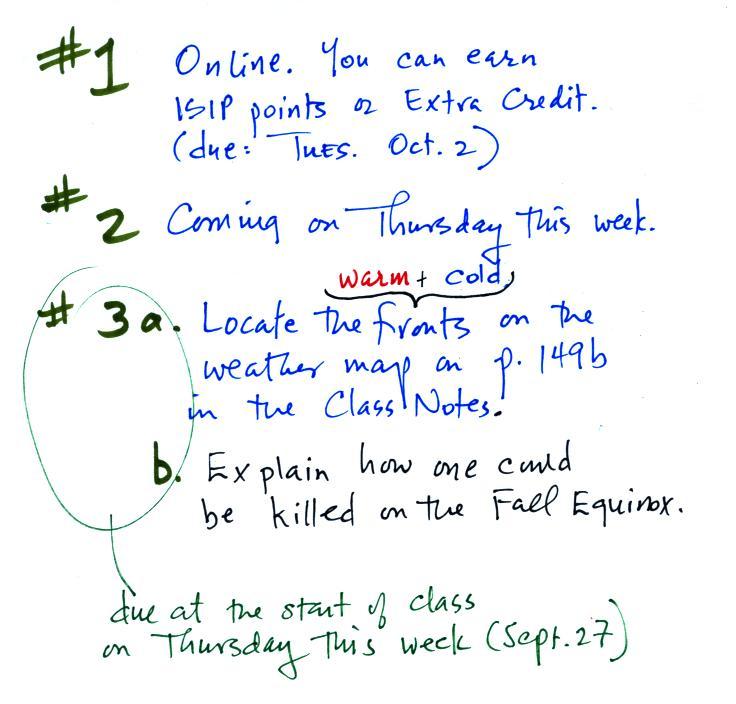 #1 Online. You can earn
1S1P points or Extra Credit.
(due: Tues. Oct. 2)
#2 Coming on Thursday this week.
warm + cold
#3a. Locate the fronts on the
weather map on p. 149b
in the Class Notes.
b. Explain how one could
be killed on the Fall Equinox.
due at the start of class
on Thursday this week (Sept. 27)